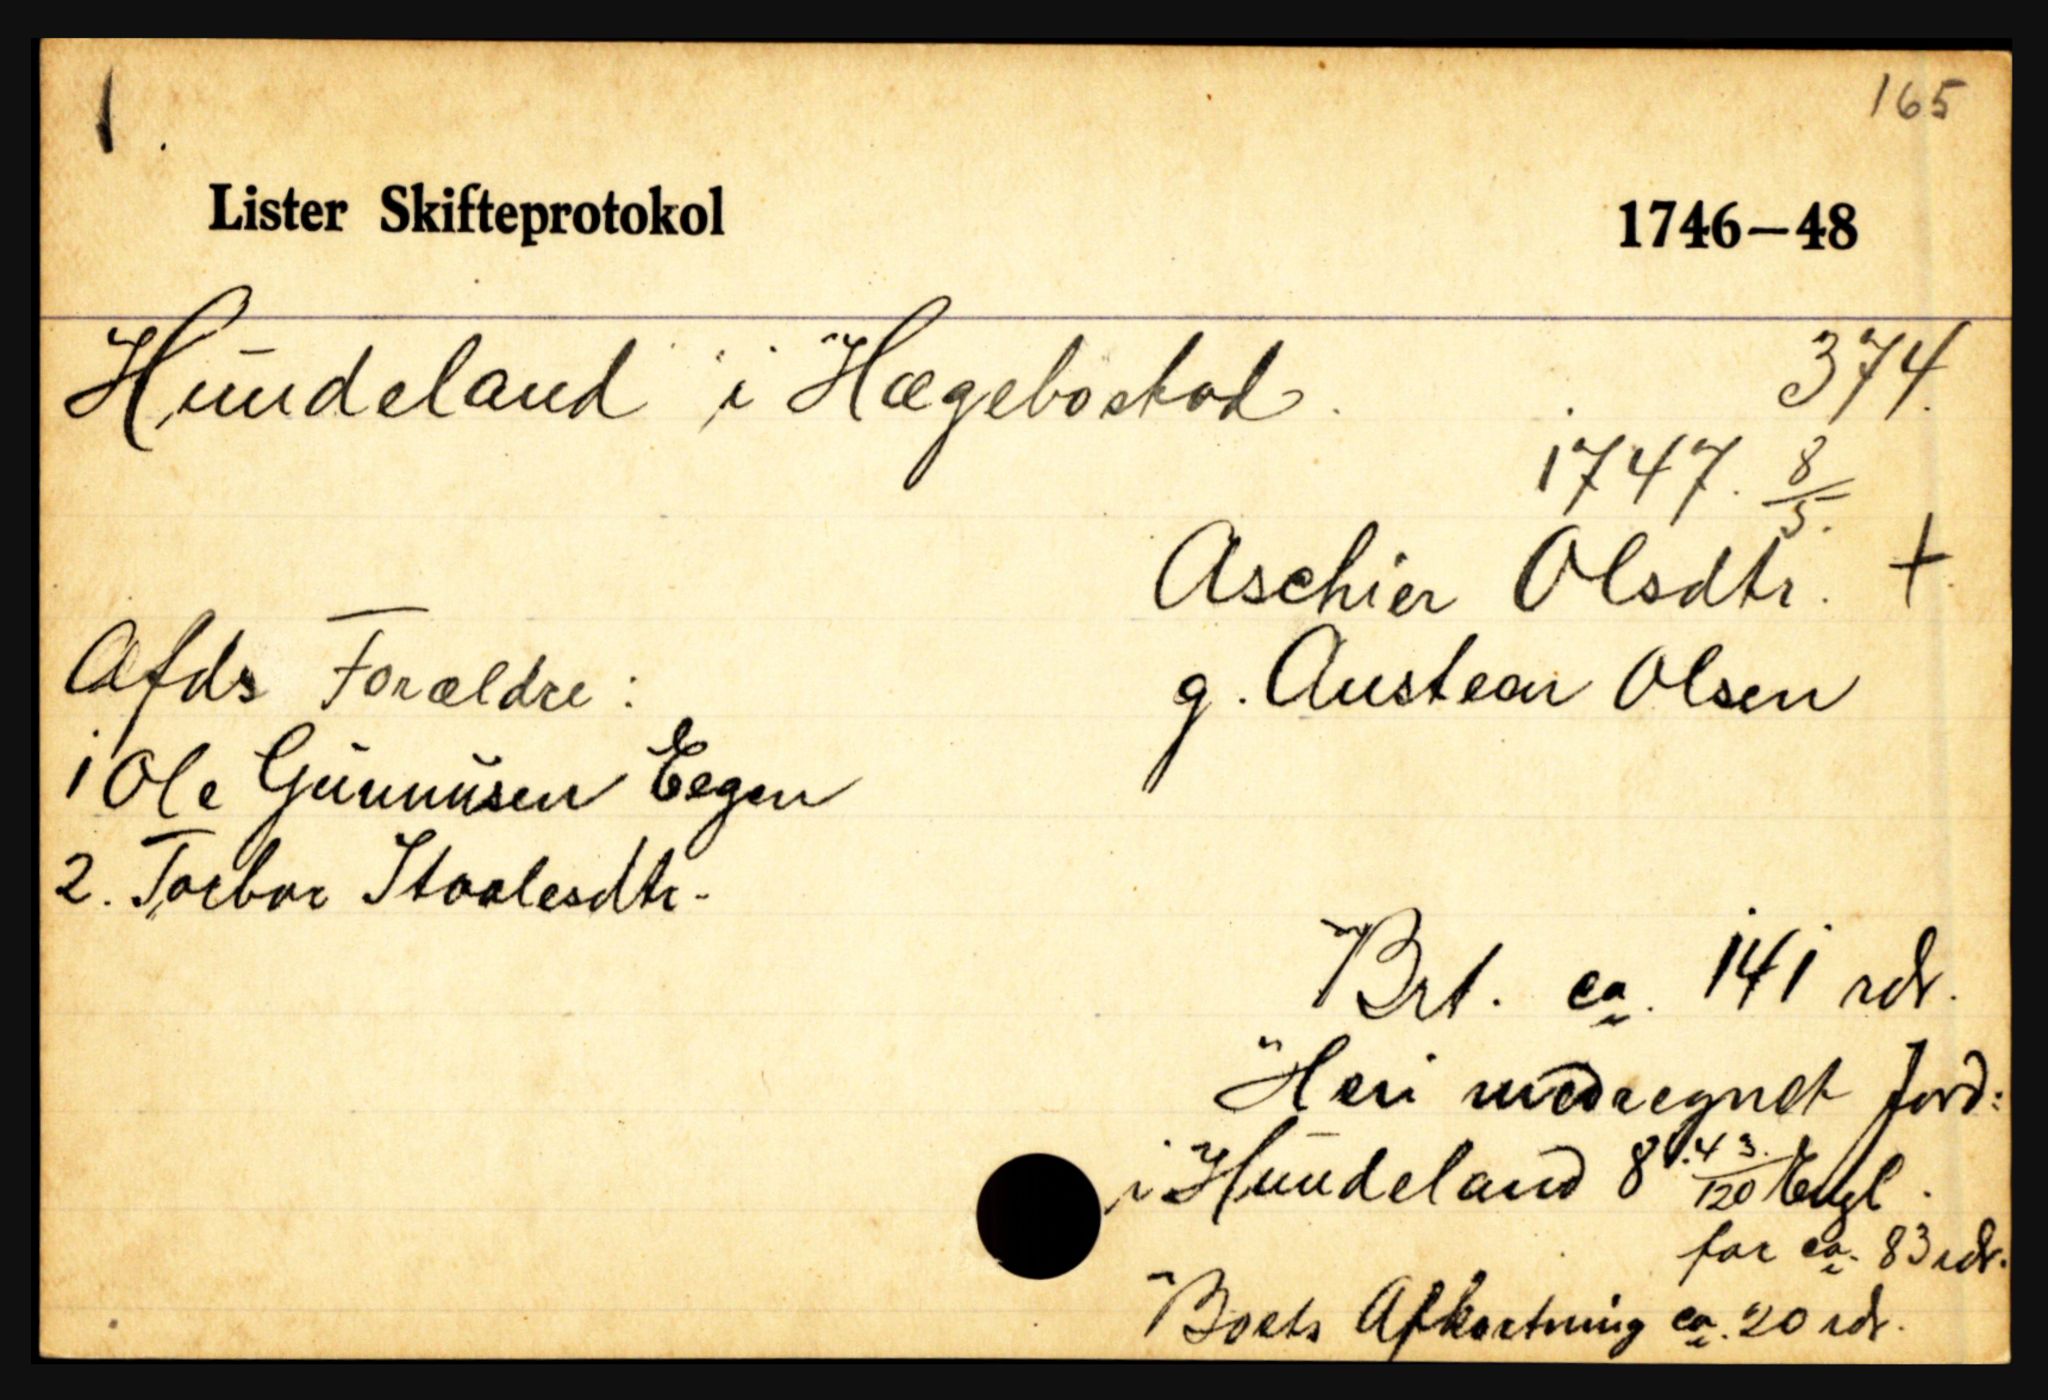 1.
165
Lister Skifteprotokol 1746–48
Hundeland i Hægebostad. 374.
1747. 8/5.
Aschier Olsdtr. +
g. Austen Olsen
Afds Forældre:
1 Ole Gunnusen Eegen
2. Torbor Staalesdtr.
Brt. ca. 141 rdr.
Heri medregnet Jord:
i Hundeland 8 43/120 Engl.
for ca. 83 rdr.
Boets Afkortning ca. 20 rdr.